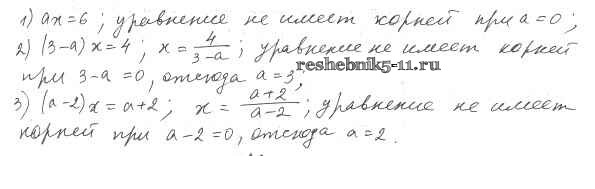 1) ax=6; уравнение не имеет корней при a=0;
2) (3-a)x=4; x=4/(3-a); уравнение не имеет корней
при 3-a=0, отсюда a=3;
reshebnik5-11.ru
3) (a-2)x=a+2; x=(a+2)/(a-2); уравнение не имеет
корней при a-2=0, отсюда a=2.